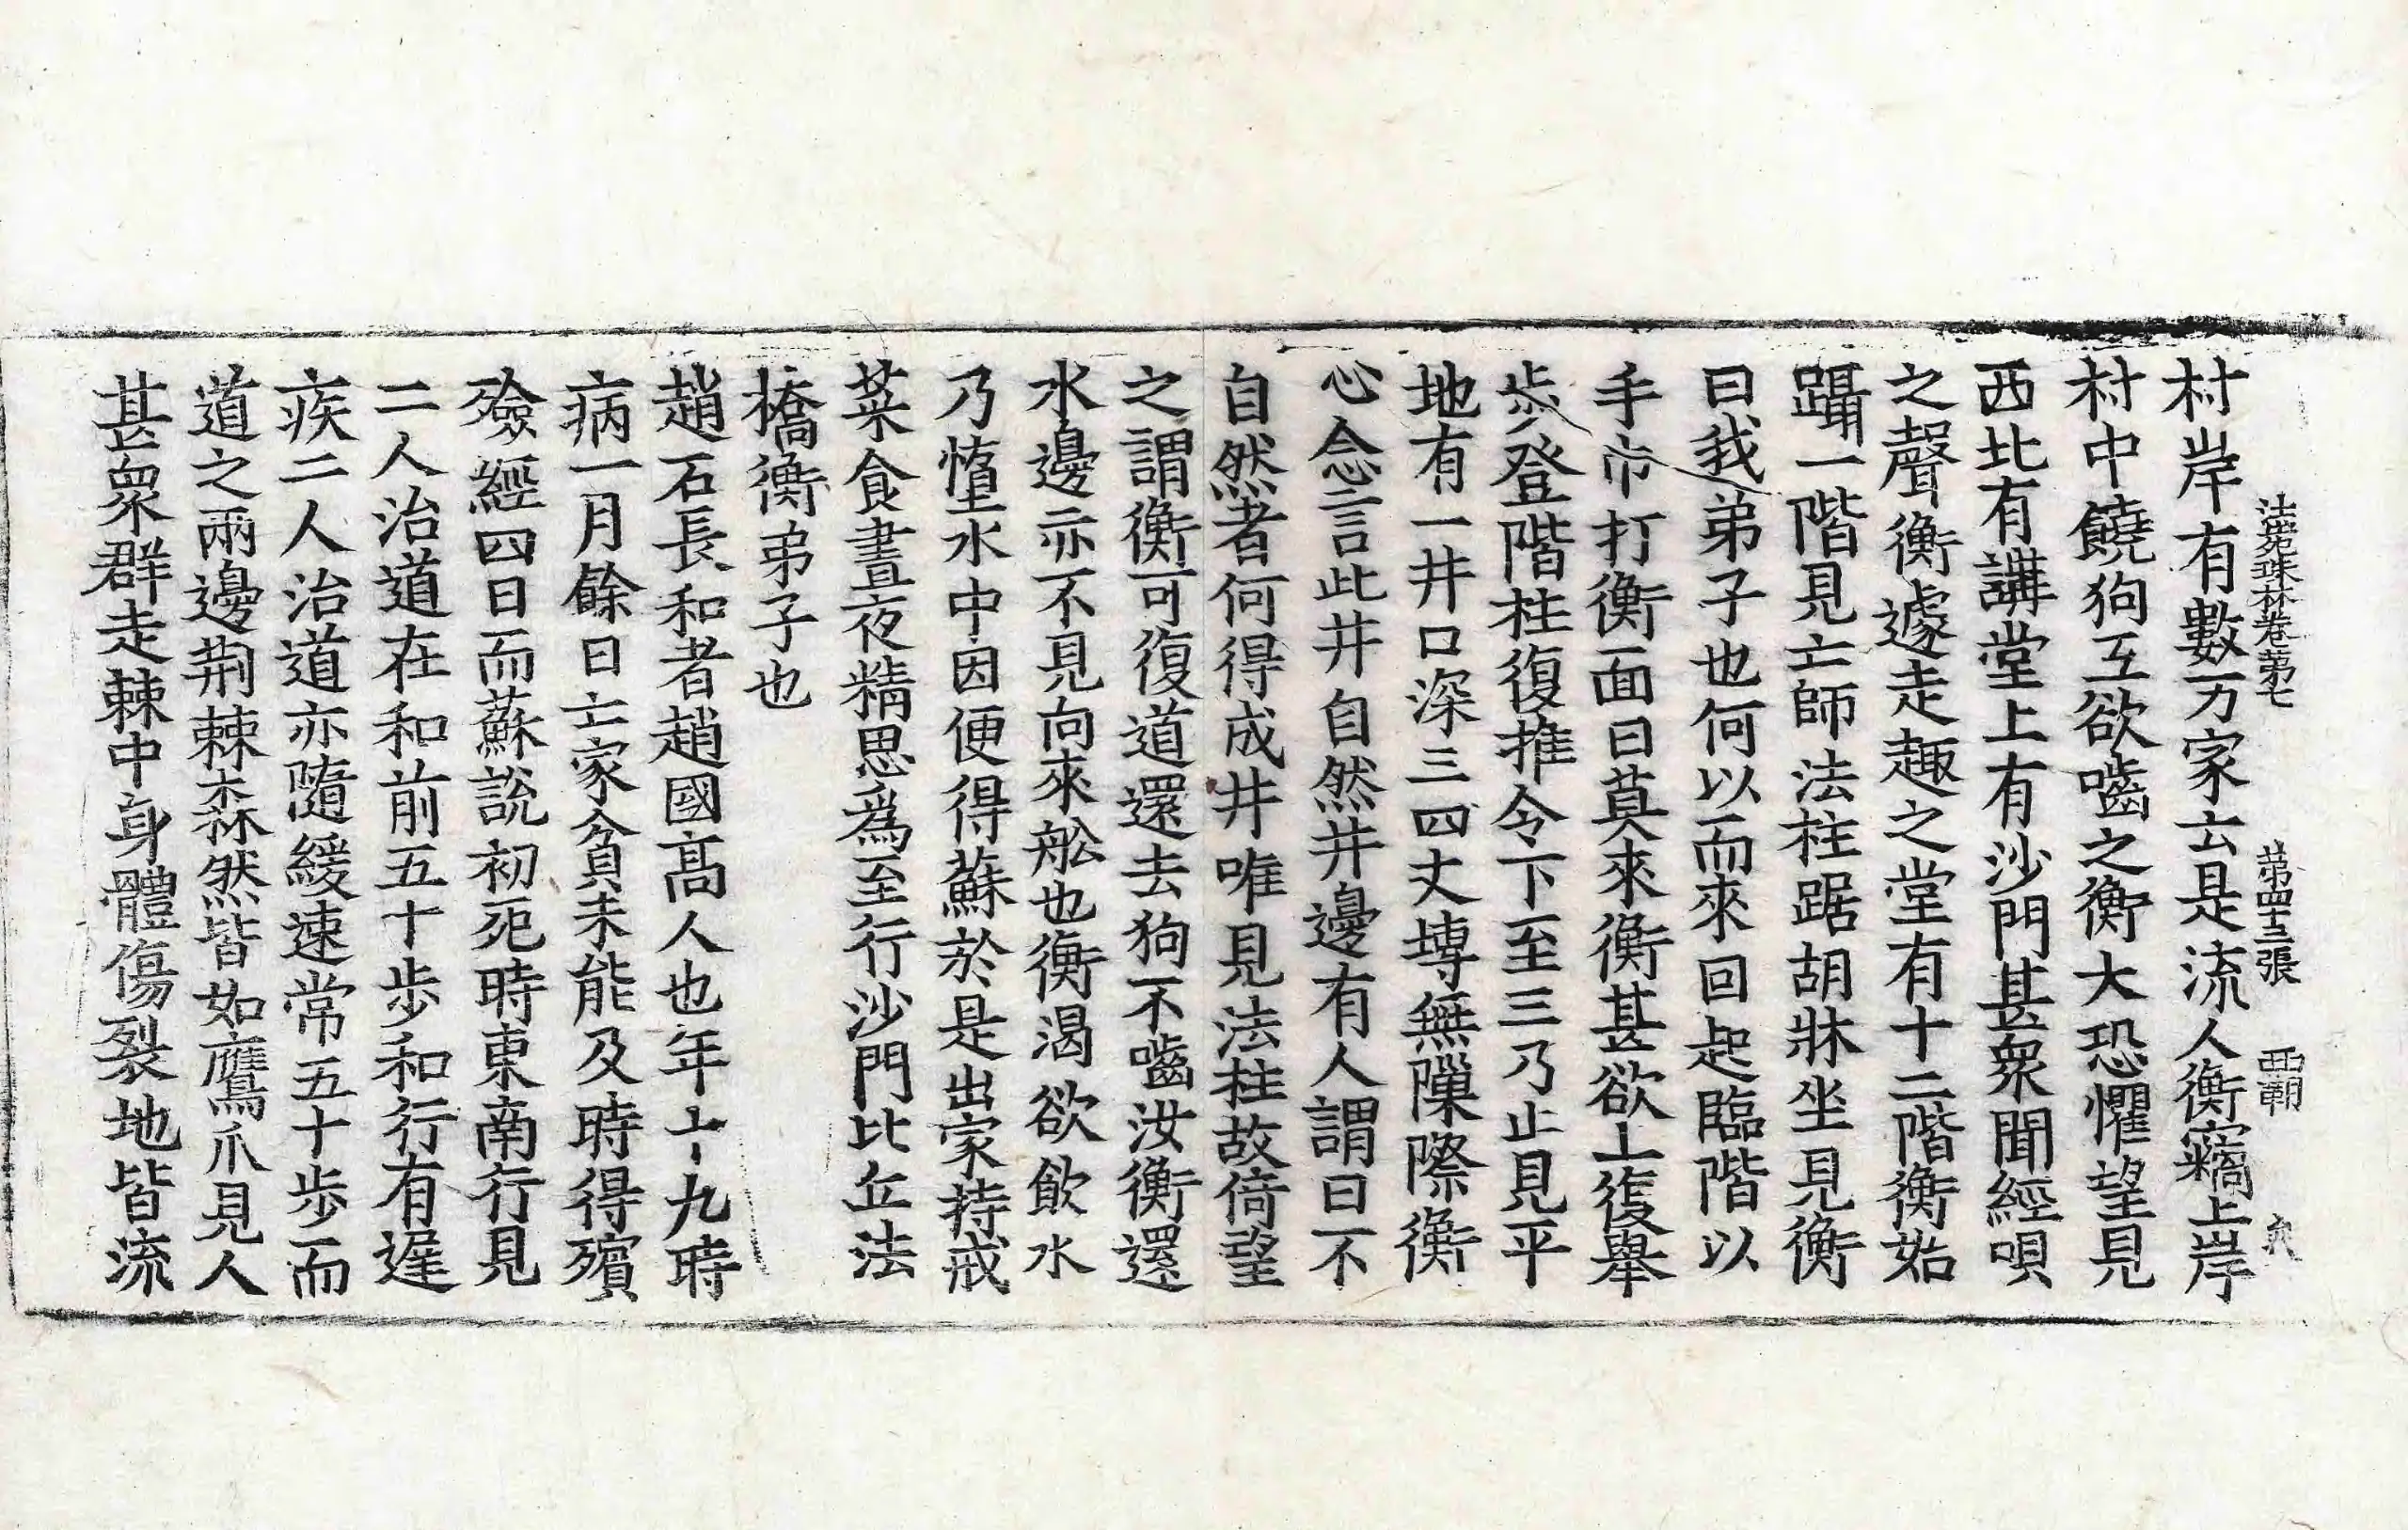 法苑珠林卷第七 第四十三張
村岸有數万家云是流人衡竊上岸
村中饒狗互欲嚙之衡大恐懼望見
西北有講堂上有沙門甚衆聞經唄
之聲衡遽走趣之堂有十二階衡始
躡一階見亡師法柱踞胡牀坐見衡
曰我弟子也何以而來回起臨階以
手巾打衡面曰莫來衡甚欲上復擧
步登階柱復推令下至三乃止見平
地有一井口深三四丈塼無隟際衡
心念言此井自然井邊有人謂曰不
自然者何得成井唯見法柱故倚望
之謂衡可復道還去狗不嚙汝衡還
水邊亦不見向來舩也衡渴欲飮水
乃墮水中因便得蘇於是出家持戒
菜食晝夜精思爲至行沙門比丘法
橋衡弟子也
趙石長和者趙國高人也年十九時
病一月餘日亡家貧未能及時得殯
殮經四日而蘇說初死時東南行見
二人治道在和前五十步和行有遲
疾二人治道亦隨緩速常五十步而
道之兩邊荆棘森然皆如鷹爪見人
甚衆群走棘中身體傷裂地皆流